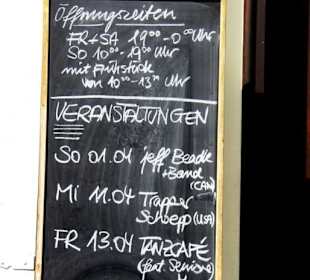 Öffnungszeiten
FR+SA 19⁰⁰-0⁰⁰Uhr
SO 10⁰⁰-19⁰⁰Uhr
mit Frühstück
von 10⁰⁰-13³⁰ Uhr
VERANSTALTUNGEN
SO 01.04 Jeff Beadle
+Band
(CAN)
Mi 11.04 Trapper
Schoepp (USA)
FR 13.04 TANZCAFÉ
(feat.